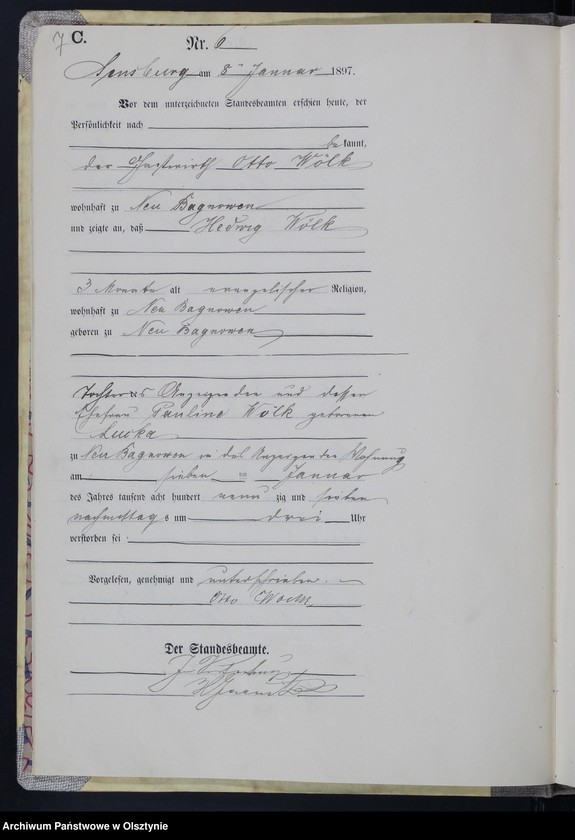 7 C.
Nr. 6
Sensburg am 8ten Januar 1897.
Vor dem unterzeichneten Standesbeamten erschien heute, der
Persönlichkeit nach
be kannt,
der Gastwirth Otto Wölk
wohnhaft zu Neu Bagnowen
und zeigte an, daß Hedwig Wölk
3 Monate alt evangelischer Religion,
wohnhaft zu Neu Bagnowen
geboren zu Neu Bagnowen
Tochter des Anzeigenden und dessen
Ehefrau Pauline Wölk geborenen
zu Neu Bagnowen in des Anzeigenden Wohnung
am sieben ten Januar
des Jahres tausend acht hundert neun zig und sieben
nachmittag s um drei Uhr
verstorben sei
Vorgelesen, genehmigt und unterschrieben.
Otto
Der Standesbeamte.
Archiwum Państwowe w Olsztynie